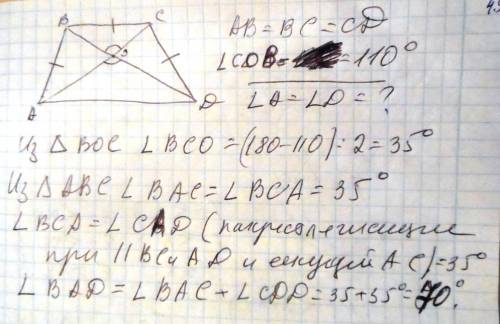 B C
AB = BC = CD
O
∠COB = 110°
A D
∠A = ∠D = ?
Из △ BOC ∠ BCO = (180 - 110) : 2 = 35°
Из △ ABC ∠ BAC = ∠ BCA = 35°
∠ BCA = ∠ CAD (накрест лежащие
при || BC и AD и секущей AC) = 35°
∠ BAD = ∠ BAC + ∠ CDD = 35 + 35° = 70°.